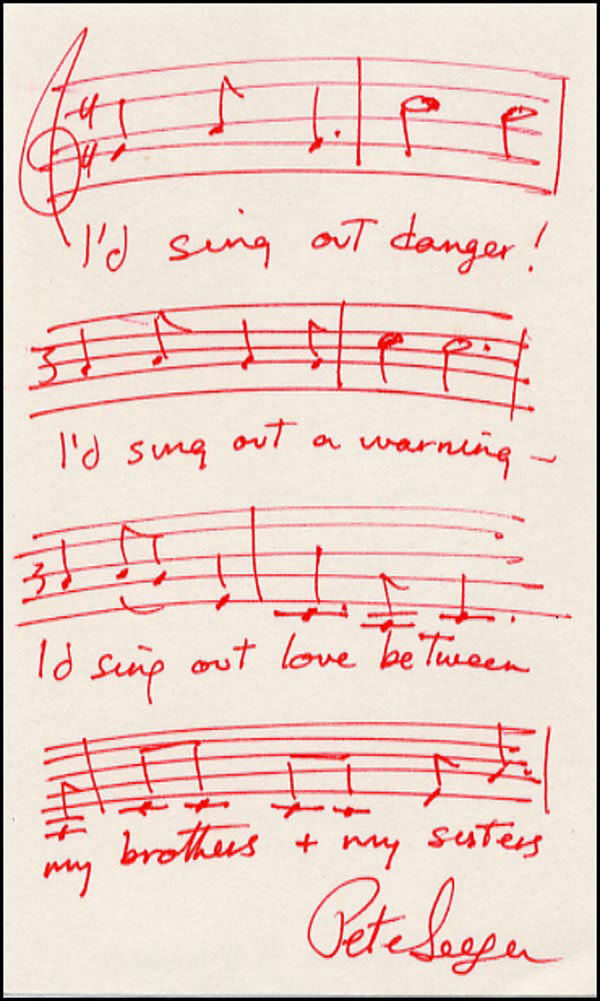 4
4
I'd sing out danger!
I'd sung out a warning -
I'd sing out love between
my brothers + my sisters
Pete Seeger